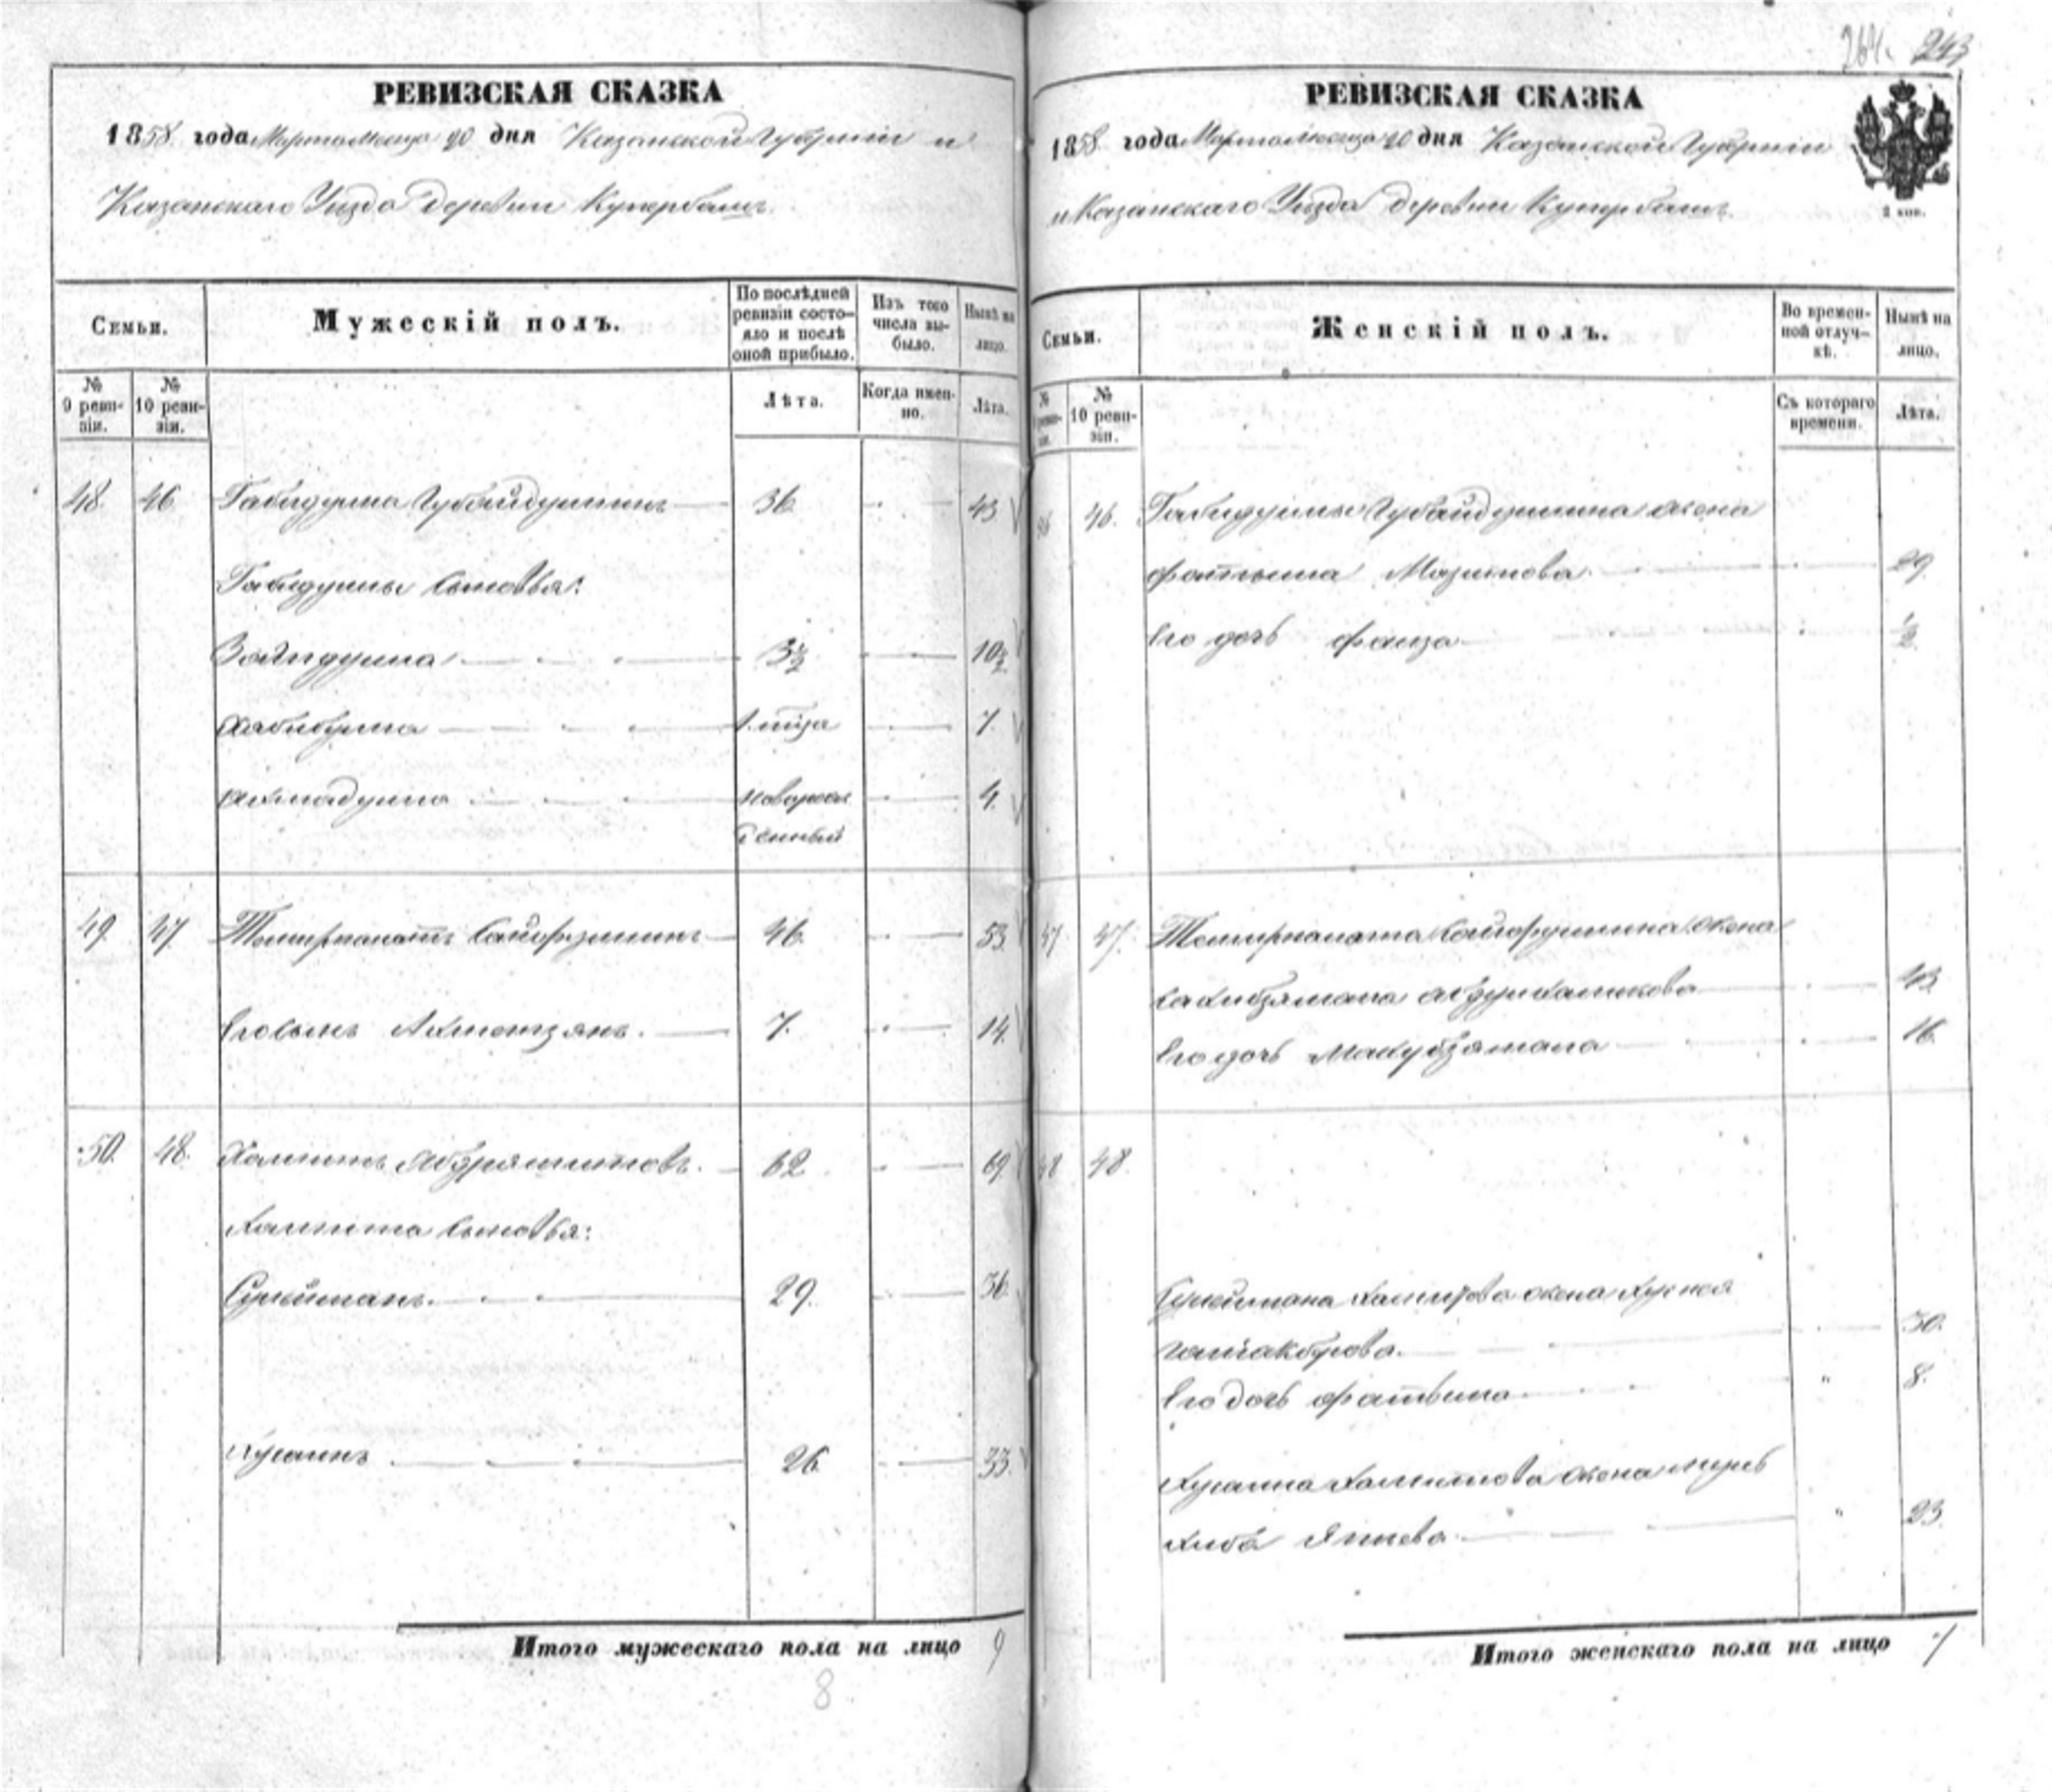 264. 243
РЕВИЗСКАЯ СКАЗКА
1858 года Марта месяца 20 дня Казанской Губернiи и
Казанскаго Уѣзда Деревни Куюрбашъ.
Семьи.
Мужескiй полъ.
По послѣдней ревизiи состояло и послѣ оной прибыло.
Изъ того числа выбыло.
Нынѣ на лицо.
№ 9 ревизiи.
№ 10 ревизiи.
Лѣта.
Когда именно.
Лѣта.
48. 46 Габидулла Губайдуллинъ 36 43
Габидуллы сыновья:
Зайнидулла 3½ 10½
Хабибулла 1. 7.
Ахмадулла новорожденный 4.
49. 47 Темирпалатъ Сайфуллинъ 46. 53
Его сынъ Ахметзянъ. 7. 14.
50. 48. Халитъ Абдряшитовъ. 62 69.
Халита сыновья:
Сулейманъ. 29. 36
Хусаинъ 26 33.
Итого мужескаго пола на лицо 9
8
РЕВИЗСКАЯ СКАЗКА
1858 года Марта месяца 20 дня Казанской Губернiи
и Казанскаго Уѣзда деревни Куюрбашъ.
2 коп.
Семьи.
Женскiй полъ.
Во временной отлучкѣ.
Нынѣ на лицо.
№ 9 ревизiи.
№ 10 ревизiи.
Съ котораго времени.
Лѣта.
46 46. Габидуллы Губайдуллина жена
Фатыма 29.
Его дочь Фаиза ½
47 47. Темирпалата Сайфуллина жена
43
Его дочь 16.
48 48.
Сулеймана Халитова жена
30.
Его дочь Фатыма. 8.
Хусаина Халитова жена
23.
Итого женскаго пола на лицо 7